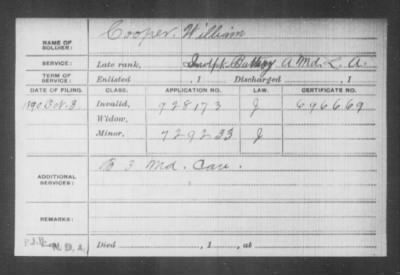 NAME OF SOLDIER: Cooper, William
SERVICE: Late rank, Battery A Md. L. A.
TERM OF SERVICE: Enlisted , 1 Discharged , 1
DATE OF FILING. CLASS. APPLICATION NO. LAW. CERTIFICATE NO.
Invalid, 928173 J 696669
Widow,
Minor, 729233 J
ADDITIONAL SERVICES: 3 Md. Cav.
REMARKS:
Died , 1 , at